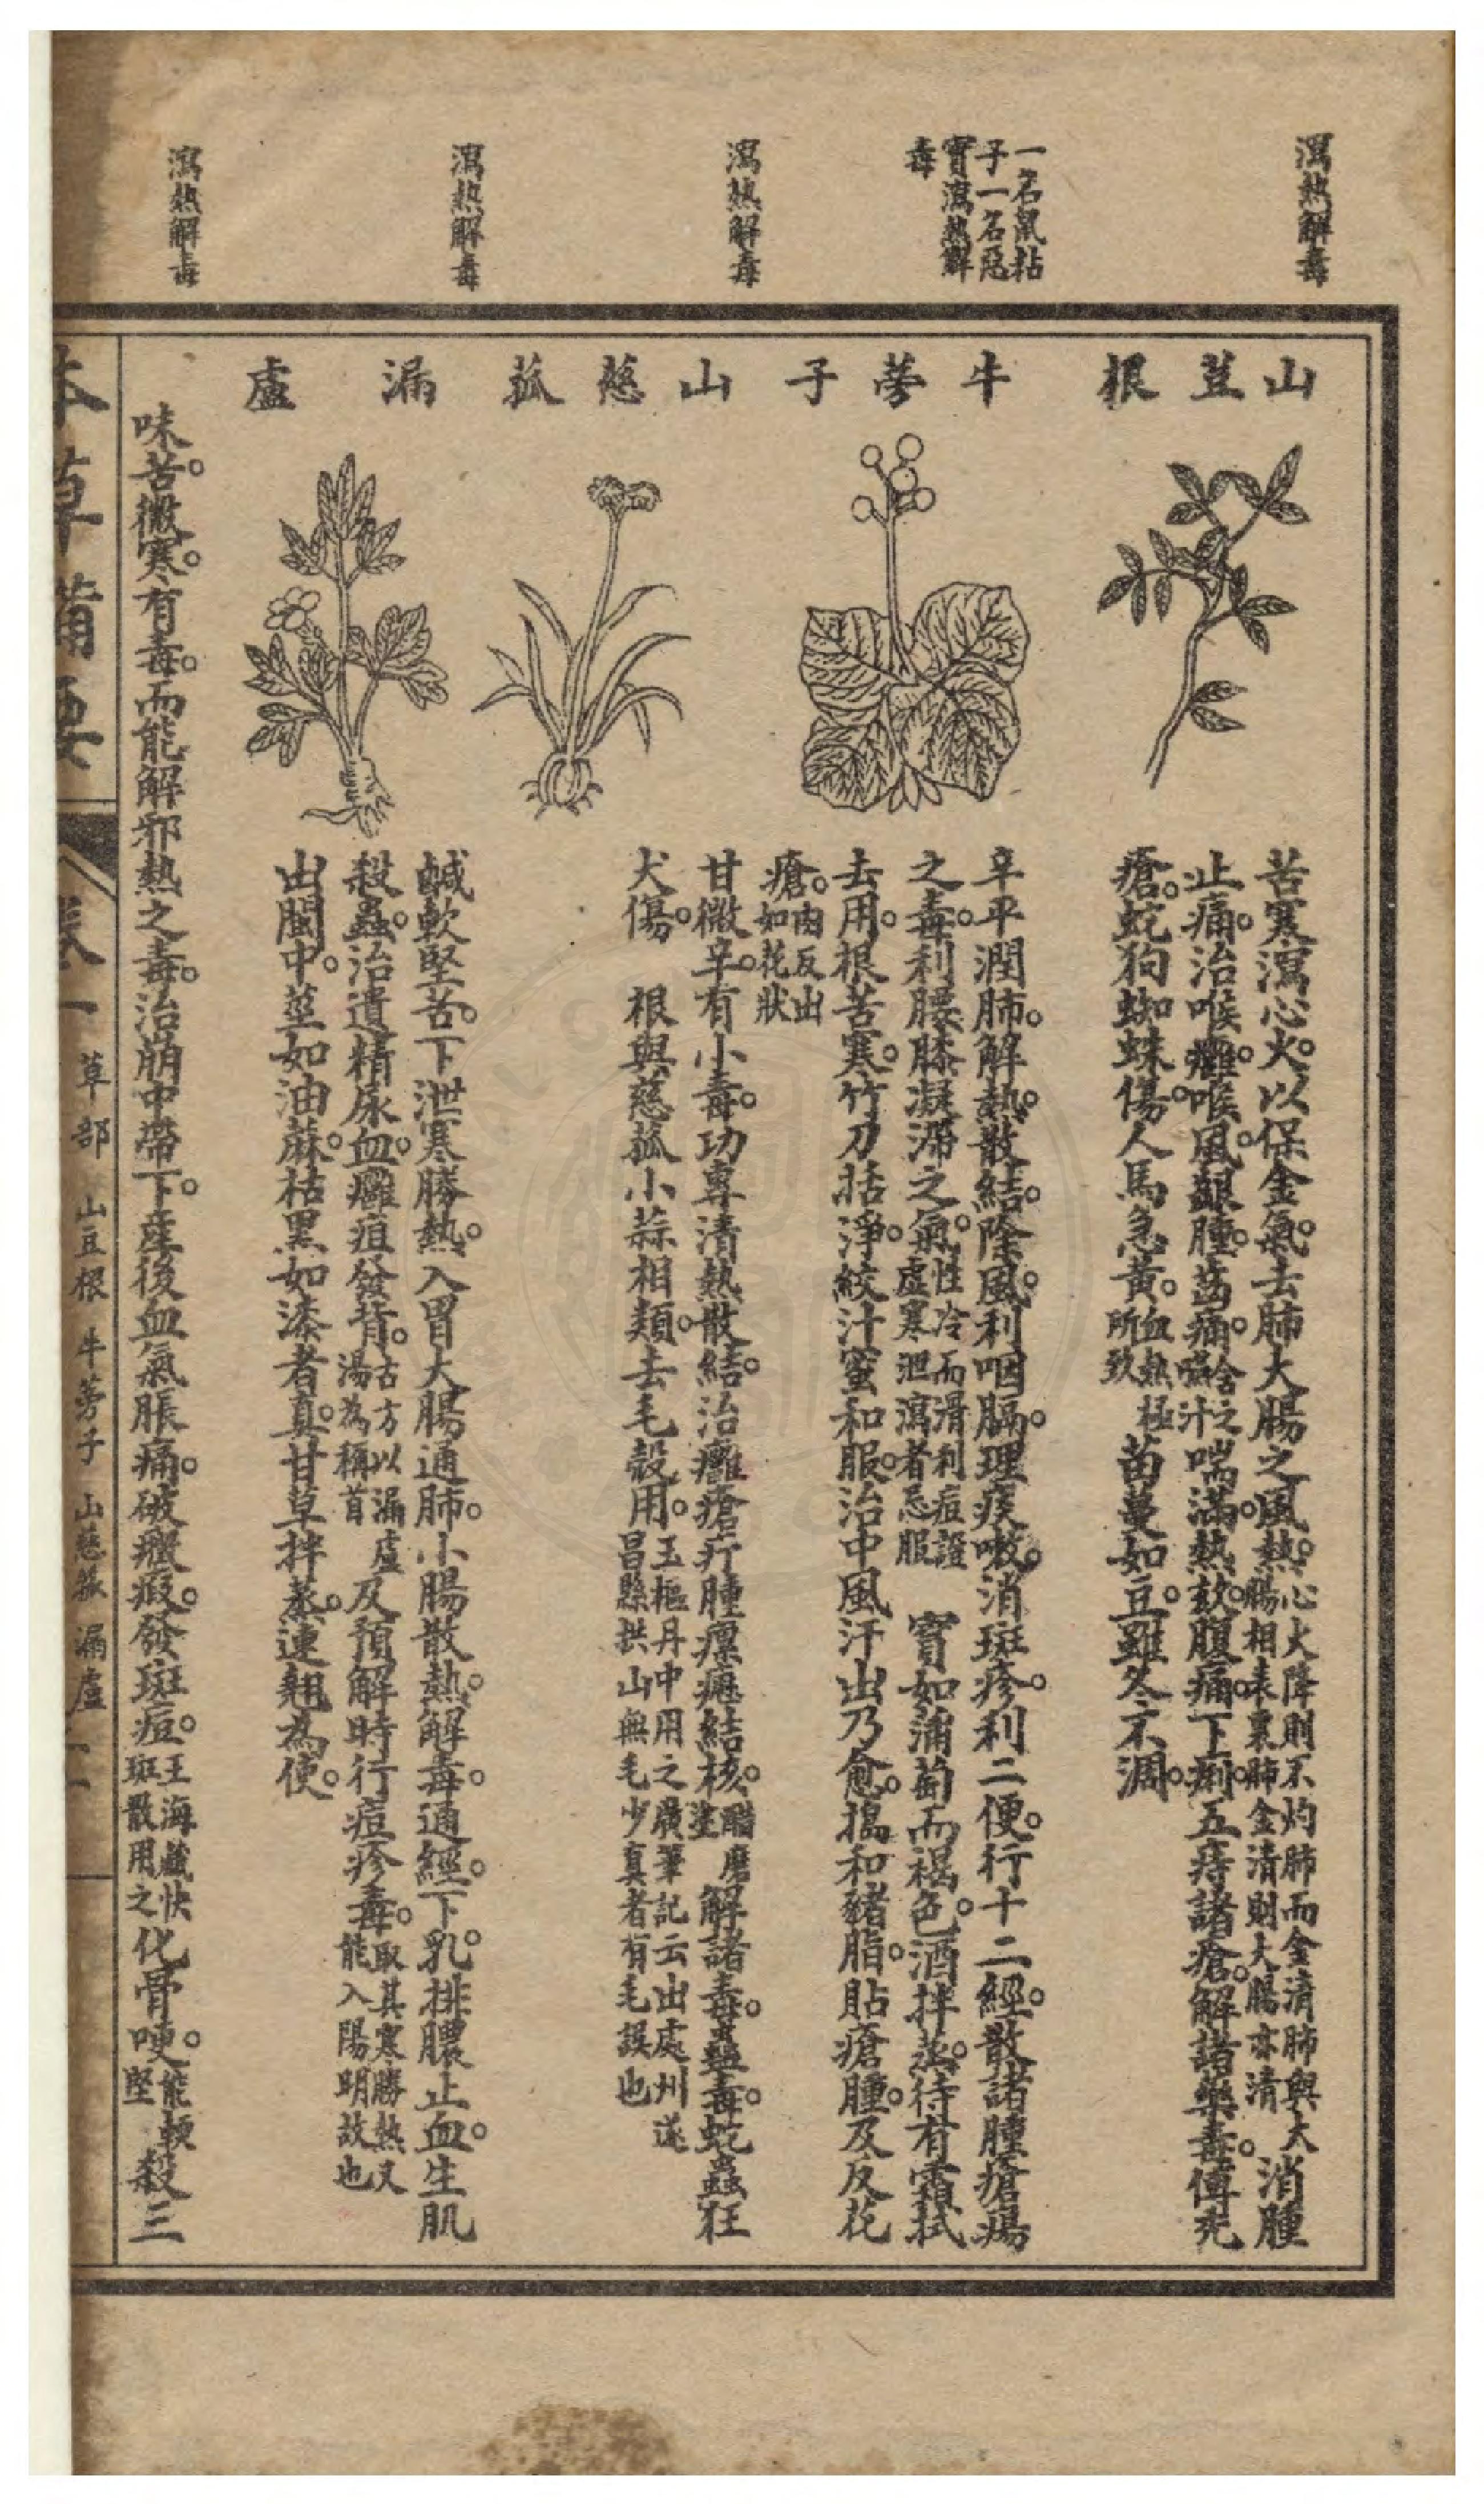 瀉熱解毒
一名鼠粘
子一名惡
實瀉熱解
毒
瀉熱解毒
瀉熱解毒
瀉熱解毒
山荳根
牛蒡子
山慈菰
漏盧
苦寒瀉心火。以保金氣。去肺大腸之風熱。心火降則不灼肺而金清肺與大腸相表裏肺金清則大腸亦清消腫
止痛。治喉癰。喉風。齦腫。齒痛。含之嚥汁喘滿。熱欬。腹痛。下痢。五痔諸瘡。解諸藥毒。傅禿
瘡。蛇狗蜘蛛傷。人馬急黃。血熱極所致苗蔓如豆。雖冬不凋。
辛平潤肺。解熱。散結。除風。利咽膈。理痰嗽。消斑疹。利二便。行十二經。散諸腫瘡瘍
之毒。利腰膝凝滯之氣。性冷而滑利痘證虛寒泄瀉者忌服 實如葡萄而褐色。酒拌蒸。待有霜拭
去用。根苦寒。竹刀括淨。絞汁蜜和服。治中風汗出乃愈。搗和豬脂。貼瘡腫。及反花
瘡。肉反出如花狀
甘微辛。有小毒。功專清熱散結。治癰瘡疔腫瘰癧結核。醋磨塗解諸毒。蠱毒。蛇蟲狂
犬傷。 根與慈菰小蒜相類。去毛殼用。玉樞丹中用之廣筆記云出處州遂昌縣拱山無毛少真者有毛誤也
鹹軟堅苦。下泄寒勝熱。入胃大腸通肺。小腸散熱。解毒。通經。下乳。排膿止血。生肌
殺蟲。治遺精尿血。癰疽發背。古方以漏盧湯為稱首及預解時行痘疹毒。取其寒勝熱又能入陽明故也
出閩中。莖如油蔴。枯黑如漆者真。甘草拌蒸。連翹為使。
味苦。微寒。有毒。而能解邪熱之毒。治崩中帶下。產後血氣脹痛。破癥瘕。發斑痘。王海藏快斑散用之化骨哽。能軟堅 殺三
本草備要 卷一 草部 山豆根 牛蒡子 山慈菰 漏盧